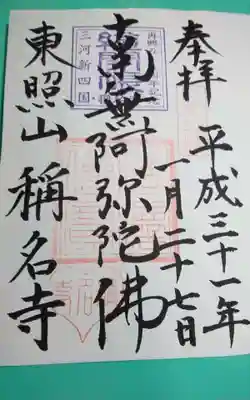 奉拝
平成三十一年
一月二十七日
南無阿弥陀佛
三河新四国
東照山稱名寺